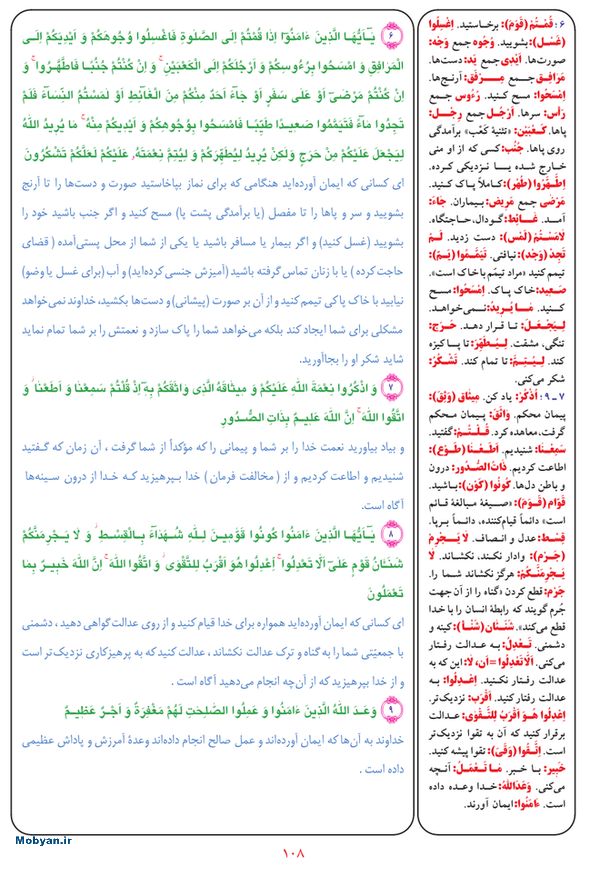 ۶ : قُمْتُمْ (قَوَمَ): برخاستید. اِغْسِلُوا
(غَسَلَ): بشویید. وُجُوه جمع وَجْه:
صورت‌ها. اَیْدِی جمع یَد: دست‌ها.
مَرَافِق جمع مِرْفَق: آرنج‌ها.
اِمْسَحُوا: مسح کنید. رُءُوس جمع
رَأْس: سرها. اَرْجُل جمع رِجْل:
پاها. کَعْبَیْنِ: «تثنیهٔ کَعْب» برآمدگی
روی پاها. جُنُب: کسی که از او منی
خارج شده یا نزدیکی کرده.
اِطَّهَّرُوا (طَهُرَ): کاملاً پاک کنید.
مَرْضَى جمع مَریض: بیماران. جَاءَ:
آمد. غَائِط: گودال، حاجتگاه.
لَامَسْتُمْ (لَمْس): دست زدید. لَمْ
تَجِدْ (وَجَدَ): نیافتی. تَیَمَّمُوا (یَمّ):
تیمم کنید «مراد تیمّم با خاک است».
صَعید: خاک پاک. اِمْسَحُوا: مسح
کنید. مَا یُریدُ: نمی‌خواهد.
لِیَجْعَلَ: تا قرار دهد. حَرَج:
تنگی، مشقت. لِیُطَهِّرَ: تا پاکیزه
کند. لِیُتِمَّ: تا تمام کند. تَشْکُرُ:
شکر می‌کنی.
۷ ـ ۹ : اُذْکُرْ: یاد کن. میثَاق (وَثِقَ):
پیمان محکم. وَاثَقَ: پیمان محکم
گرفت، معاهده کرد. قُلْتُمْ: گفتید.
سَمِعْنَا: شنیدیم. اَطَعْنَا (طَوَعَ):
اطاعت کردیم. ذَاتُ الصُّدُور: درون
و باطن دل‌ها. کُونُوا (کَوَنَ): باشید.
قَوَّام (قَوَمَ): «صیغهٔ مبالغهٔ قائم
است» دائماً قیام‌کننده، دائماً برپا.
قِسْط: عدل و انصاف. لَا یَجْرِمَ
(جَرَمَ): وادار نکند، نکشاند. لَا
یَجْرِمَنَّکُمْ: هرگز نکشاند شما را.
جَرَمَ: قطع کردن «گناه را از آن جهت
جُرم گویند که رابطهٔ انسان را با خدا
قطع می‌کند». شَنَئَان (شَنَأَ): کینه و
دشمنی. تَعْدِلُ: به عدالت رفتار
می‌کنی. اَلَّا تَعْدِلُوا = اَن، لا: این که به
عدالت رفتار نکنید. اِعْدِلُوا: به
عدالت رفتار کنید. اَقْرَب: نزدیک‌تر.
اِعْدِلُوا هُوَ اَقْرَبُ لِلتَّقْوَى: عدالت
برقرار کنید که آن به تقوا نزدیک‌تر
است. اِتَّقُوا (وَقَیَ): تقوا پیشه کنید.
خَبیر: با خبر. مَا تَعْمَلُ: آنچه
می‌کنی. وَعَدَ اللهُ: خدا وعده داده
است. ءَامَنُوا: ایمان آورند.
۶ یَـٰٓاَیُّهَا الَّذینَ ءَامَنُوٓا اِذَا قُمْتُمْ اِلَی الصَّلٰوةِ فَاغْسِلُوا وُجُوهَکُمْ وَ اَیْدِیَکُمْ اِلَی
الْمَرَافِقِ وَ امْسَحُوا بِرُءُوسِکُمْ وَ اَرْجُلَکُمْ اِلَی الْکَعْبَیْنِ ۚ وَ اِنْ کُنْتُمْ جُنُبًا فَاطَّهَّرُوا ۚ وَ
اِنْ کُنْتُمْ مَرْضىٓ اَوْ عَلىٰ سَفَرٍ اَوْ جَآءَ اَحَدٌ مِنْکُمْ مِنَ الْغَآئِطِ اَوْ لٰمَسْتُمُ النِّسَآءَ فَلَمْ
تَجِدُوا مَآءً فَتَیَمَّمُوا صَعیدًا طَیِّبًا فَامْسَحُوا بِوُجُوهِکُمْ وَ اَیْدیکُمْ مِنْهُ ۚ مَا یُریدُ اللهُ
لِیَجْعَلَ عَلَیْکُمْ مِنْ حَرَجٍ وَلٰکِنْ یُریدُ لِیُطَهِّرَکُمْ وَ لِیُتِمَّ نِعْمَتَهُ عَلَیْکُمْ لَعَلَّکُمْ تَشْکُرُونَ
ای کسانی که ایمان آورده‌اید هنگامی که برای نماز بپاخاستید صورت و دست‌ها را تا آرنج
بشویید و سر و پاها را تا مفصل (یا برآمدگی پشت پا) مسح کنید و اگر جنب باشید خود را
بشویید (غسل کنید) و اگر بیمار یا مسافر باشید یا یکی از شما از محل پستی‌آمده ( قضای
حاجت کرده ) یا با زنان تماس گرفته باشید (آمیزش جنسی کرده‌اید) و آب (برای غسل یا وضو)
نیابید با خاک پاکی تیمم کنید و از آن بر صورت (پیشانی) و دست‌ها بکشید، خداوند نمی‌خواهد
مشکلی برای شما ایجاد کند بلکه می‌خواهد شما را پاک سازد و نعمتش را بر شما تمام نماید
شاید شکر او را بجاآورید.
۷ وَ اذْکُرُوا نِعْمَةَ اللهِ عَلَیْکُمْ وَ میثَاقَهُ الَّذی وَاثَقَکُمْ بِهٖٓ اِذْ قُلْتُمْ سَمِعْنَا وَ اَطَعْنَا ۖ وَ
اتَّقُوا اللهَ ۚ اِنَّ اللهَ عَلیمٌ بِذَاتِ الصُّدُورِ
و بیاد بیاورید نعمت خدا را بر شما و پیمانی را که مؤکداً از شما گرفت ، آن زمان که گفتید
شنیدیم و اطاعت کردیم و از ( مخالفت فرمان ) خدا بپرهیزید که خدا از درون سینه‌ها
آگاه است.
۸ یَـٰٓاَیُّهَا الَّذینَ ءَامَنُوا کُونُوا قَوّٰمینَ لِلّٰهِ شُهَدَآءَ بِالْقِسْطِ ۖ وَ لَا یَجْرِمَنَّکُمْ
شَنَـَٔانُ قَوْمٍ عَلىٰٓ اَلَّا تَعْدِلُوا ۚ اِعْدِلُوا هُوَ اَقْرَبُ لِلتَّقْوىٰ ۖ وَ اتَّقُوا اللهَ ۚ اِنَّ اللهَ خَبیرٌ بِمَا
تَعْمَلُونَ
ای کسانی که ایمان آورده‌اید همواره برای خدا قیام کنید و از روی عدالت گواهی دهید ، دشمنی
با جمعیّتی شما را به گناه و ترک عدالت نکشاند ، عدالت کنید که به پرهیزکاری نزدیک‌تر است
و از خدا بپرهیزید که از آن‌چه انجام می‌دهید آگاه است .
۹ وَعَدَ اللهُ الَّذینَ ءَامَنُوا وَ عَمِلُوا الصّٰلِحٰتِ لَهُمْ مَغْفِرَةٌ وَ اَجْرٌ عَظیمٌ
خداوند به آن‌ها که ایمان آورده‌اند و عمل صالح انجام داده‌اند وعدهٔ آمرزش و پاداش عظیمی
داده است .
Mobyan.ir
۱۰۸